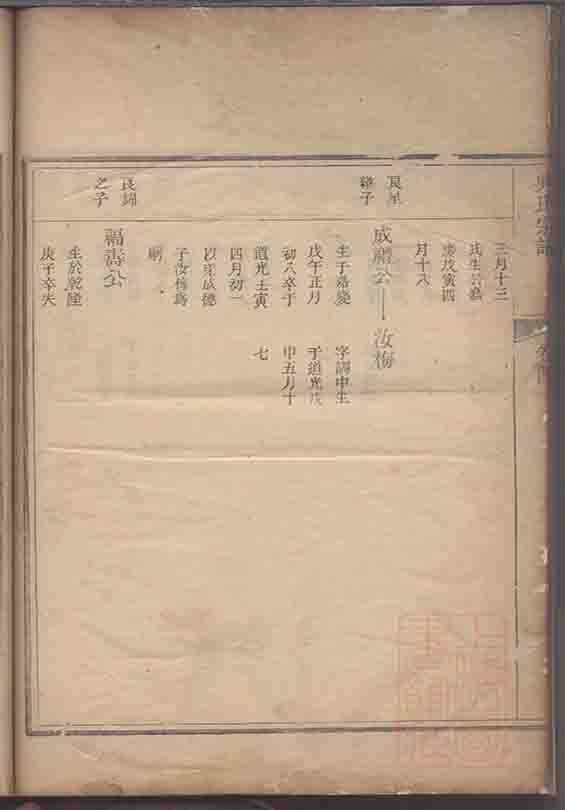 三月十三
氏生於嘉
慶戊寅四
月十六
良星
繼子
成禮公—汝梅
生于嘉慶
戊午正月
初八卒于
道光壬寅
四月初一
以胞成德
子汝梅為
嗣
字調中生
于道光戊
申五月十
七
良錦
之子
福壽公
生於乾隆
庚子卒失